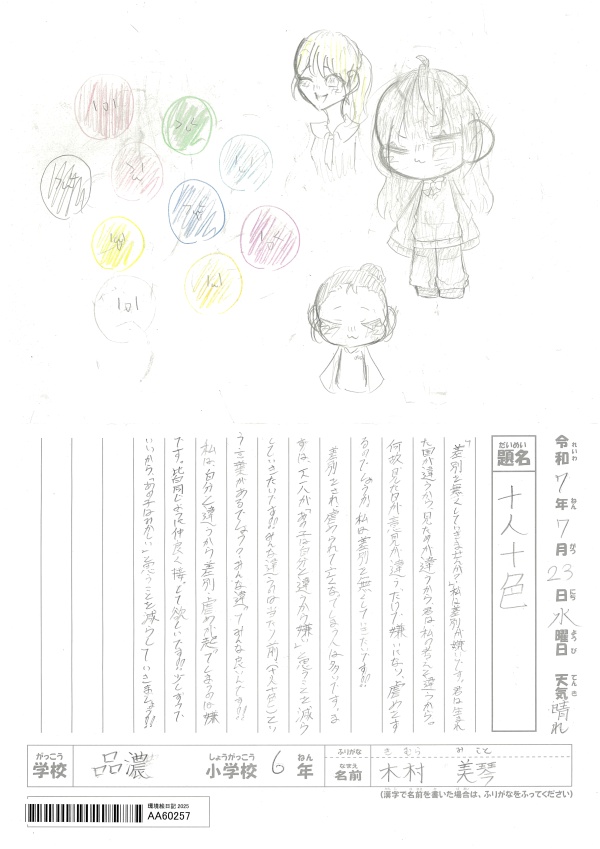 令和7年7月23日水曜日 天気 晴れ
れいわ ねん がつ にち ようび てんき
だいめい
題名
十人十色
「差別を無くしていきませんか?」私は差別が嫌いです。君は生まれ
た国が違うから、見た目が違うから、君は私の考えと違うから。
何故、見た目が、意見が違うだけで嫌いになり、虐めをす
るのでしょうか。私は差別を無くしていきたいです!!
差別をされ、虐められて亡くなってしまう人は多いです。ま
ずは、一人一人が「あの子は自分と違うから嫌」と思うことを減ら
していきたいです!!みんな違うのは当たり前(十人十色)とい
う言葉があるでしょう?みんな違ってみんな良いんです!!
私は、自分と違うから差別、虐めが起こってしまうのは嫌
です。皆同じように仲良く接して欲しいです!!少しずつで
いいから、「あの子はおかしい」と思うことを減らしていきましょう!!
がっこう しょうがっこう ねん
学校 品濃 小学校 6年
ふりがな きむら みこと
なまえ
名前 木村 美琴
(漢字で名前を書いた場合は、ふりがなをふってください)
環境絵日記 2025
AA60257